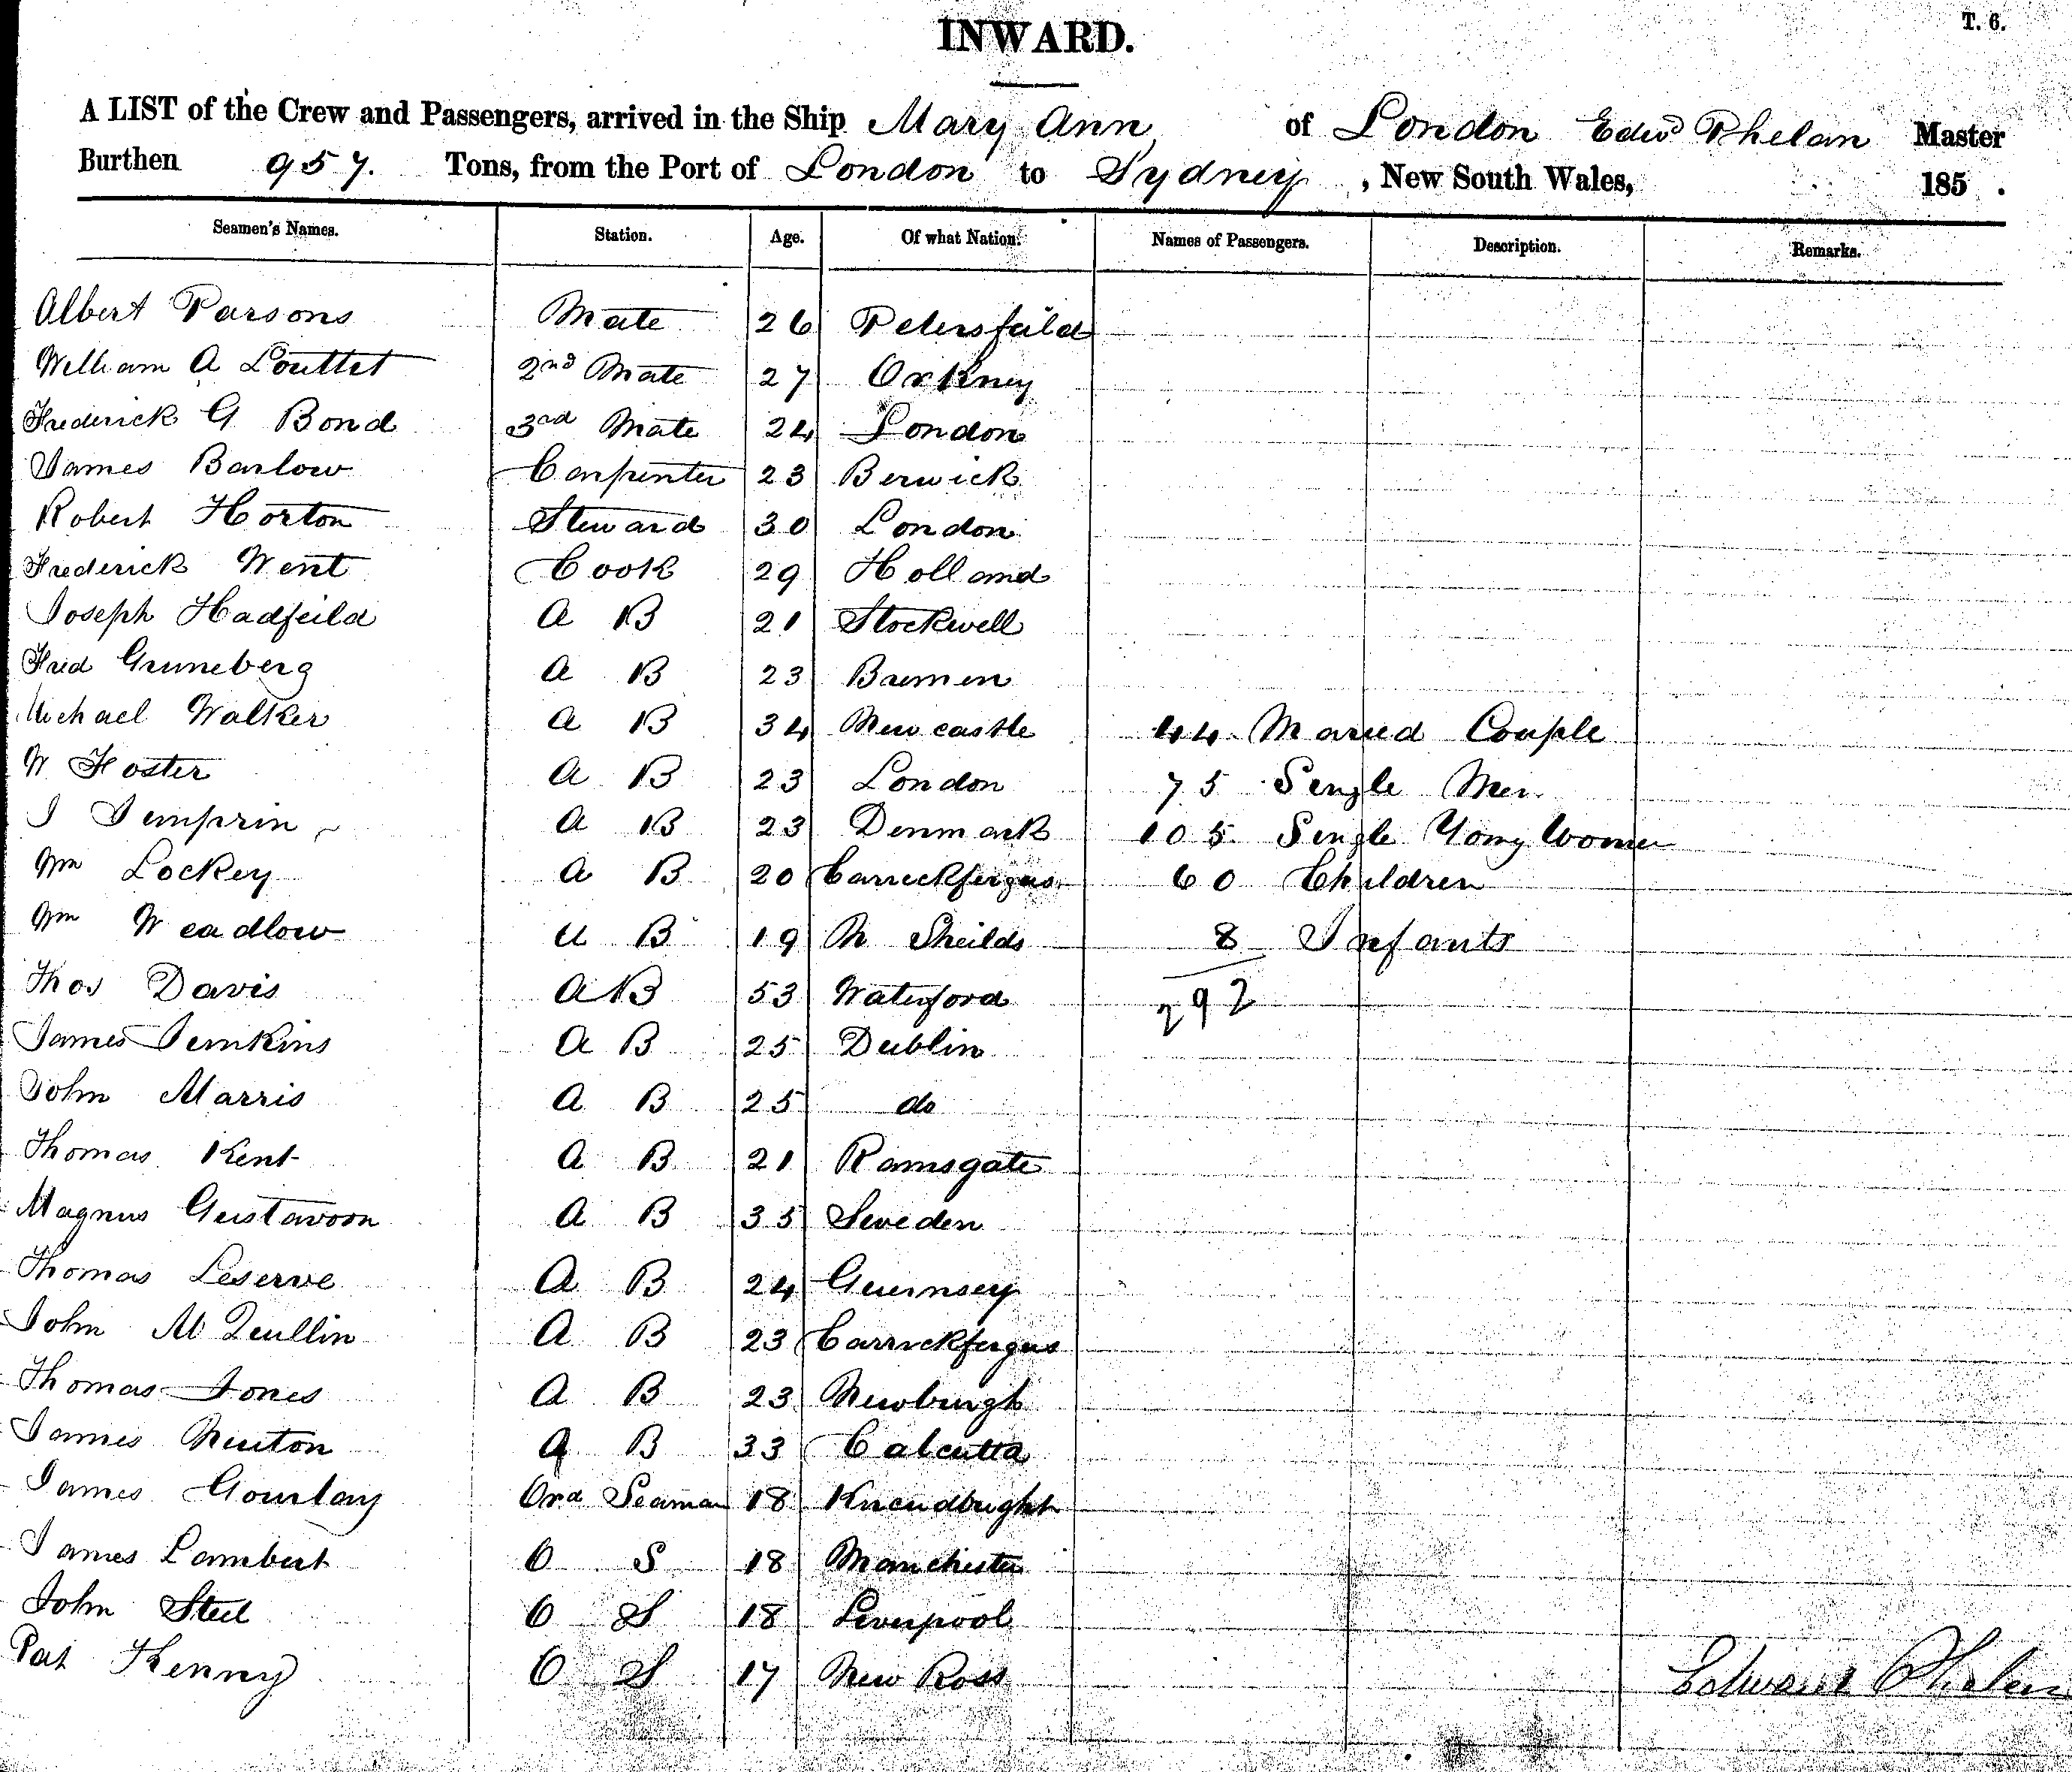 T. 6.
INWARD.
A LIST of the Crew and Passengers, arrived in the Ship Mary Ann of London Edwd Phelan Master
Burthen 957. Tons, from the Port of London to Sydney, New South Wales, 185 .
Seamen's Names. Station. Age. Of what Nation. Names of Passengers. Description. Remarks.
Albert Parsons Mate 26 Petersfeild
William A Louttet 2nd Mate 27 Orkney
Frederick G Bond 3rd Mate 24 London
James Barlow Carpenter 23 Berwick
Robert Horton Steward 30 London
Frederick Went Cook 29 Holland
Joseph Hadfeild A B 21 Stockwell
Fred Gruneberg A B 23 Bremen
Michael Walker A B 34 Newcastle 44 Maried Couple
W Foster A B 23 London 75 Single Men
J A B 23 Denmark 105 Single Yong Women
Wm Lockey A B 20 Carrickfergus 60 Children
Wm Weadlow A B 19 N Sheilds 8 Infants
Thos Davis A B 53 Waterford 292
James Jemkins A B 25 Dublin
John Marris A B 25 do
Thomas Kent A B 21 Ramsgate
Magnus Gustavson A B 35 Sweden
Thomas Leserve A B 24 Guernsey
John McQuillin A B 23 Carrickfergus
Thomas Jones A B 23 Newburgh
James Newton A B 33 Calcutta
James Gourlay Ord Seaman 18 Kircudbright
James Lambert O S 18 Manchester
John Steel O S 18 Liverpool
Pat Kenny O S 17 New Ross
Edward Phelan